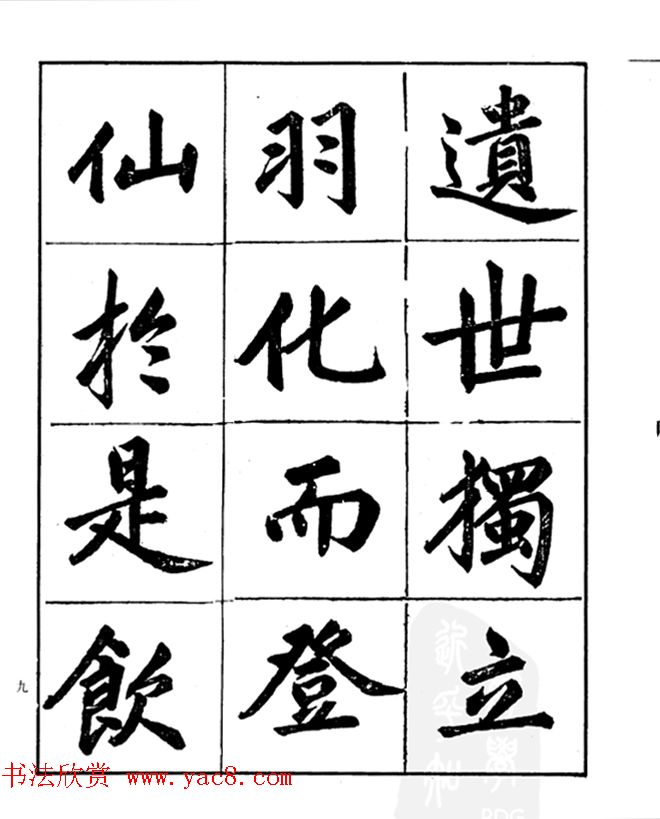 遺世獨立
羽化而登
仙於是飲
九
书法欣赏 www.yac8.com